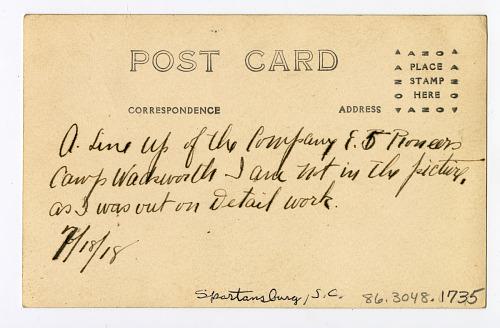 POST CARD
AZO
PLACE
STAMP
HERE
AZO
CORRESPONDENCE
ADDRESS
A. Line up of the Company E. 5 Pioneers
Camp Wadsworth I am not in the picture,
as I was out on Detail work.
7/18/18
Spartansburg, S.C.
86.3048.1735